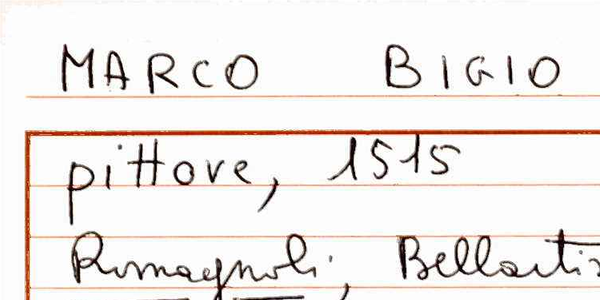 MARCO BIGIO
pittore, 1515
Romagnoli, Bellarti